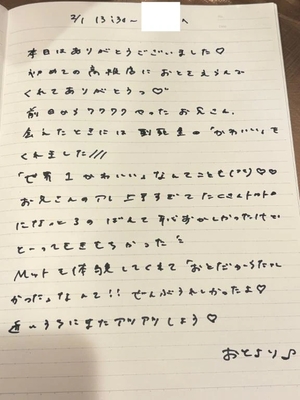 2/1 13:30~ へ
本日はありがとうございました♡
初めての高級店におとをえらんで
くれてありがとうっ♡
前日からワクワクやったお兄さん、
会えたときには 「かわいい」て
くれました///
「世界1かわいい」なんてことも(°▽°)♡♡
お兄さんのアレ 上手すぎてたくさんトロトロ
になっとるの ばれて 恥ずかしかったけど
とーってもきもちかった
Mットも体験してくれて「おとだからたのし
かった」なんて!! ぜんぶうれしかったよ♡
近いうちにまたアツアツしよう♡
おとより♪